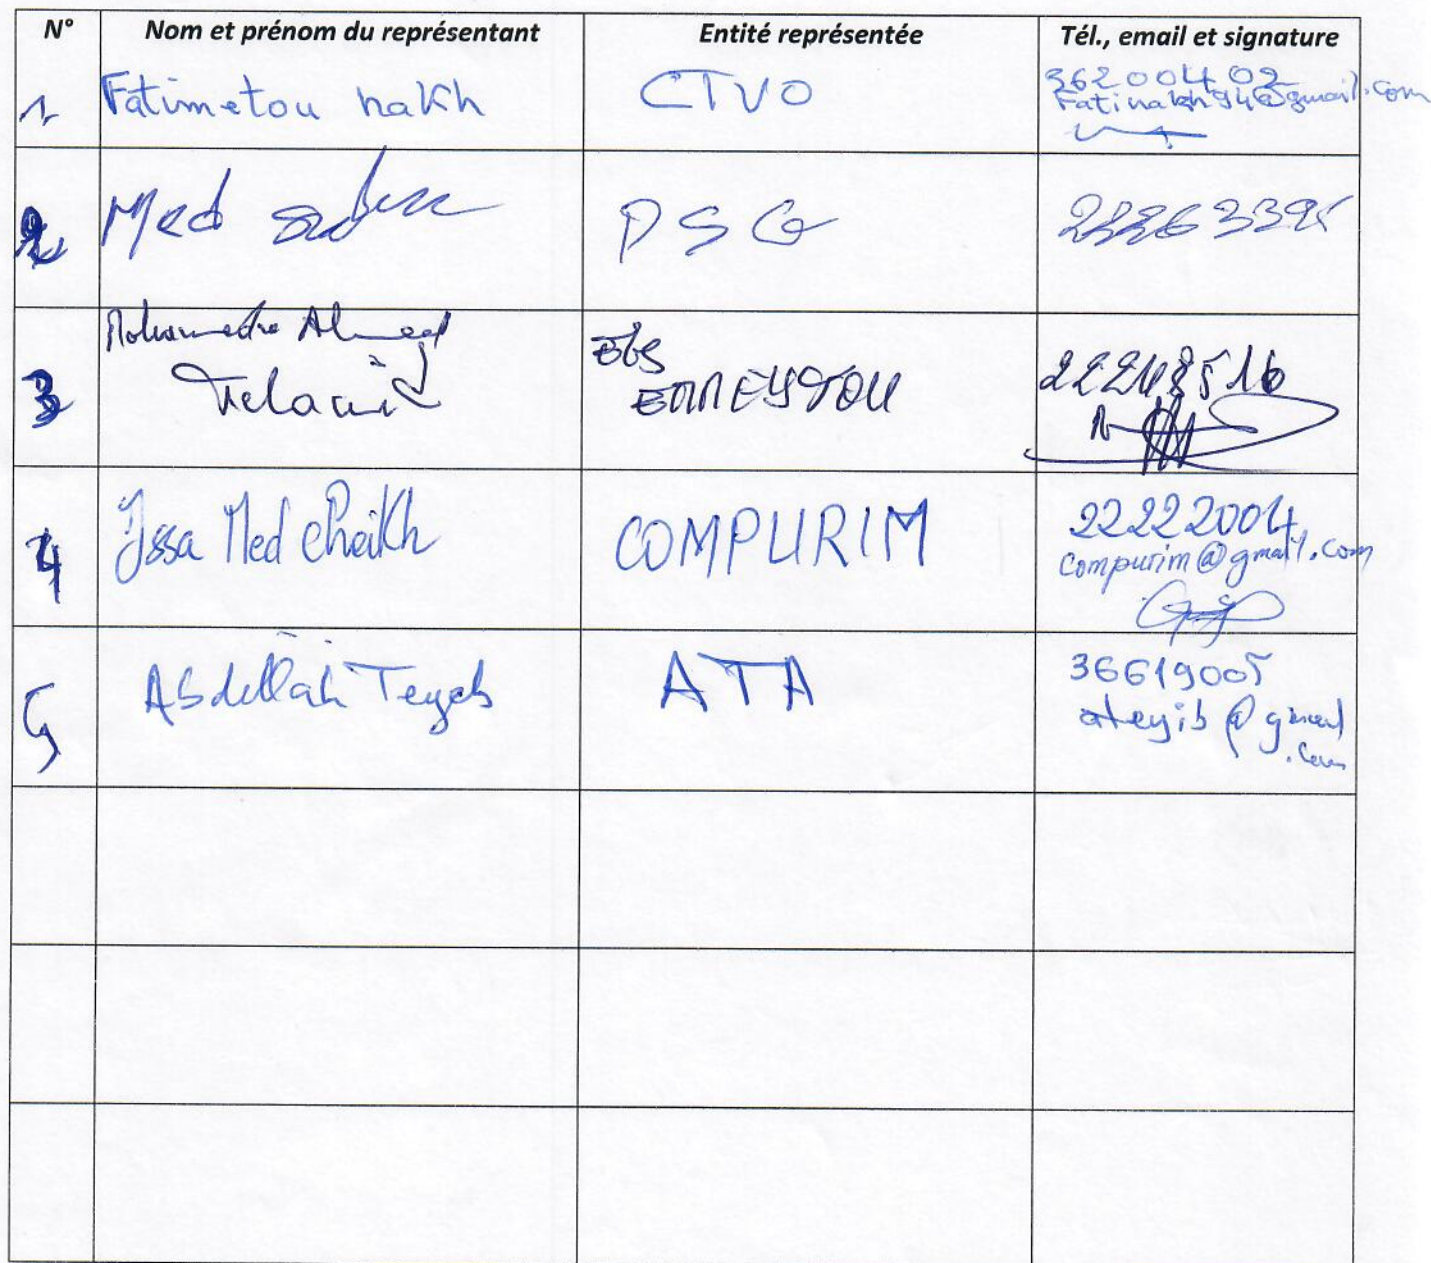 N° Nom et prénom du représentant Entité représentée Tél., email et signature
1 Fatimetou nakh CTVO 36200402
Fatinakh94@gmail.com
2 Med PSG 22263395
3 Mohamedou Ahmed Ets 22248516
EMMEYSTOU
4 Issa Med Cheikh COMPURIM 22222004
compurim@gmail.com
5 Abdellah Teyeb ATA 36619005
ateyib@gmail
.com